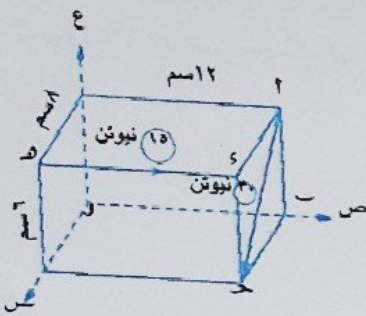 ع
١٢سم
أ
٨سم
١٥ نيوتن
ط
ء
٣٠ نيوتن
ب
ص
و
٦سم
جـ
س